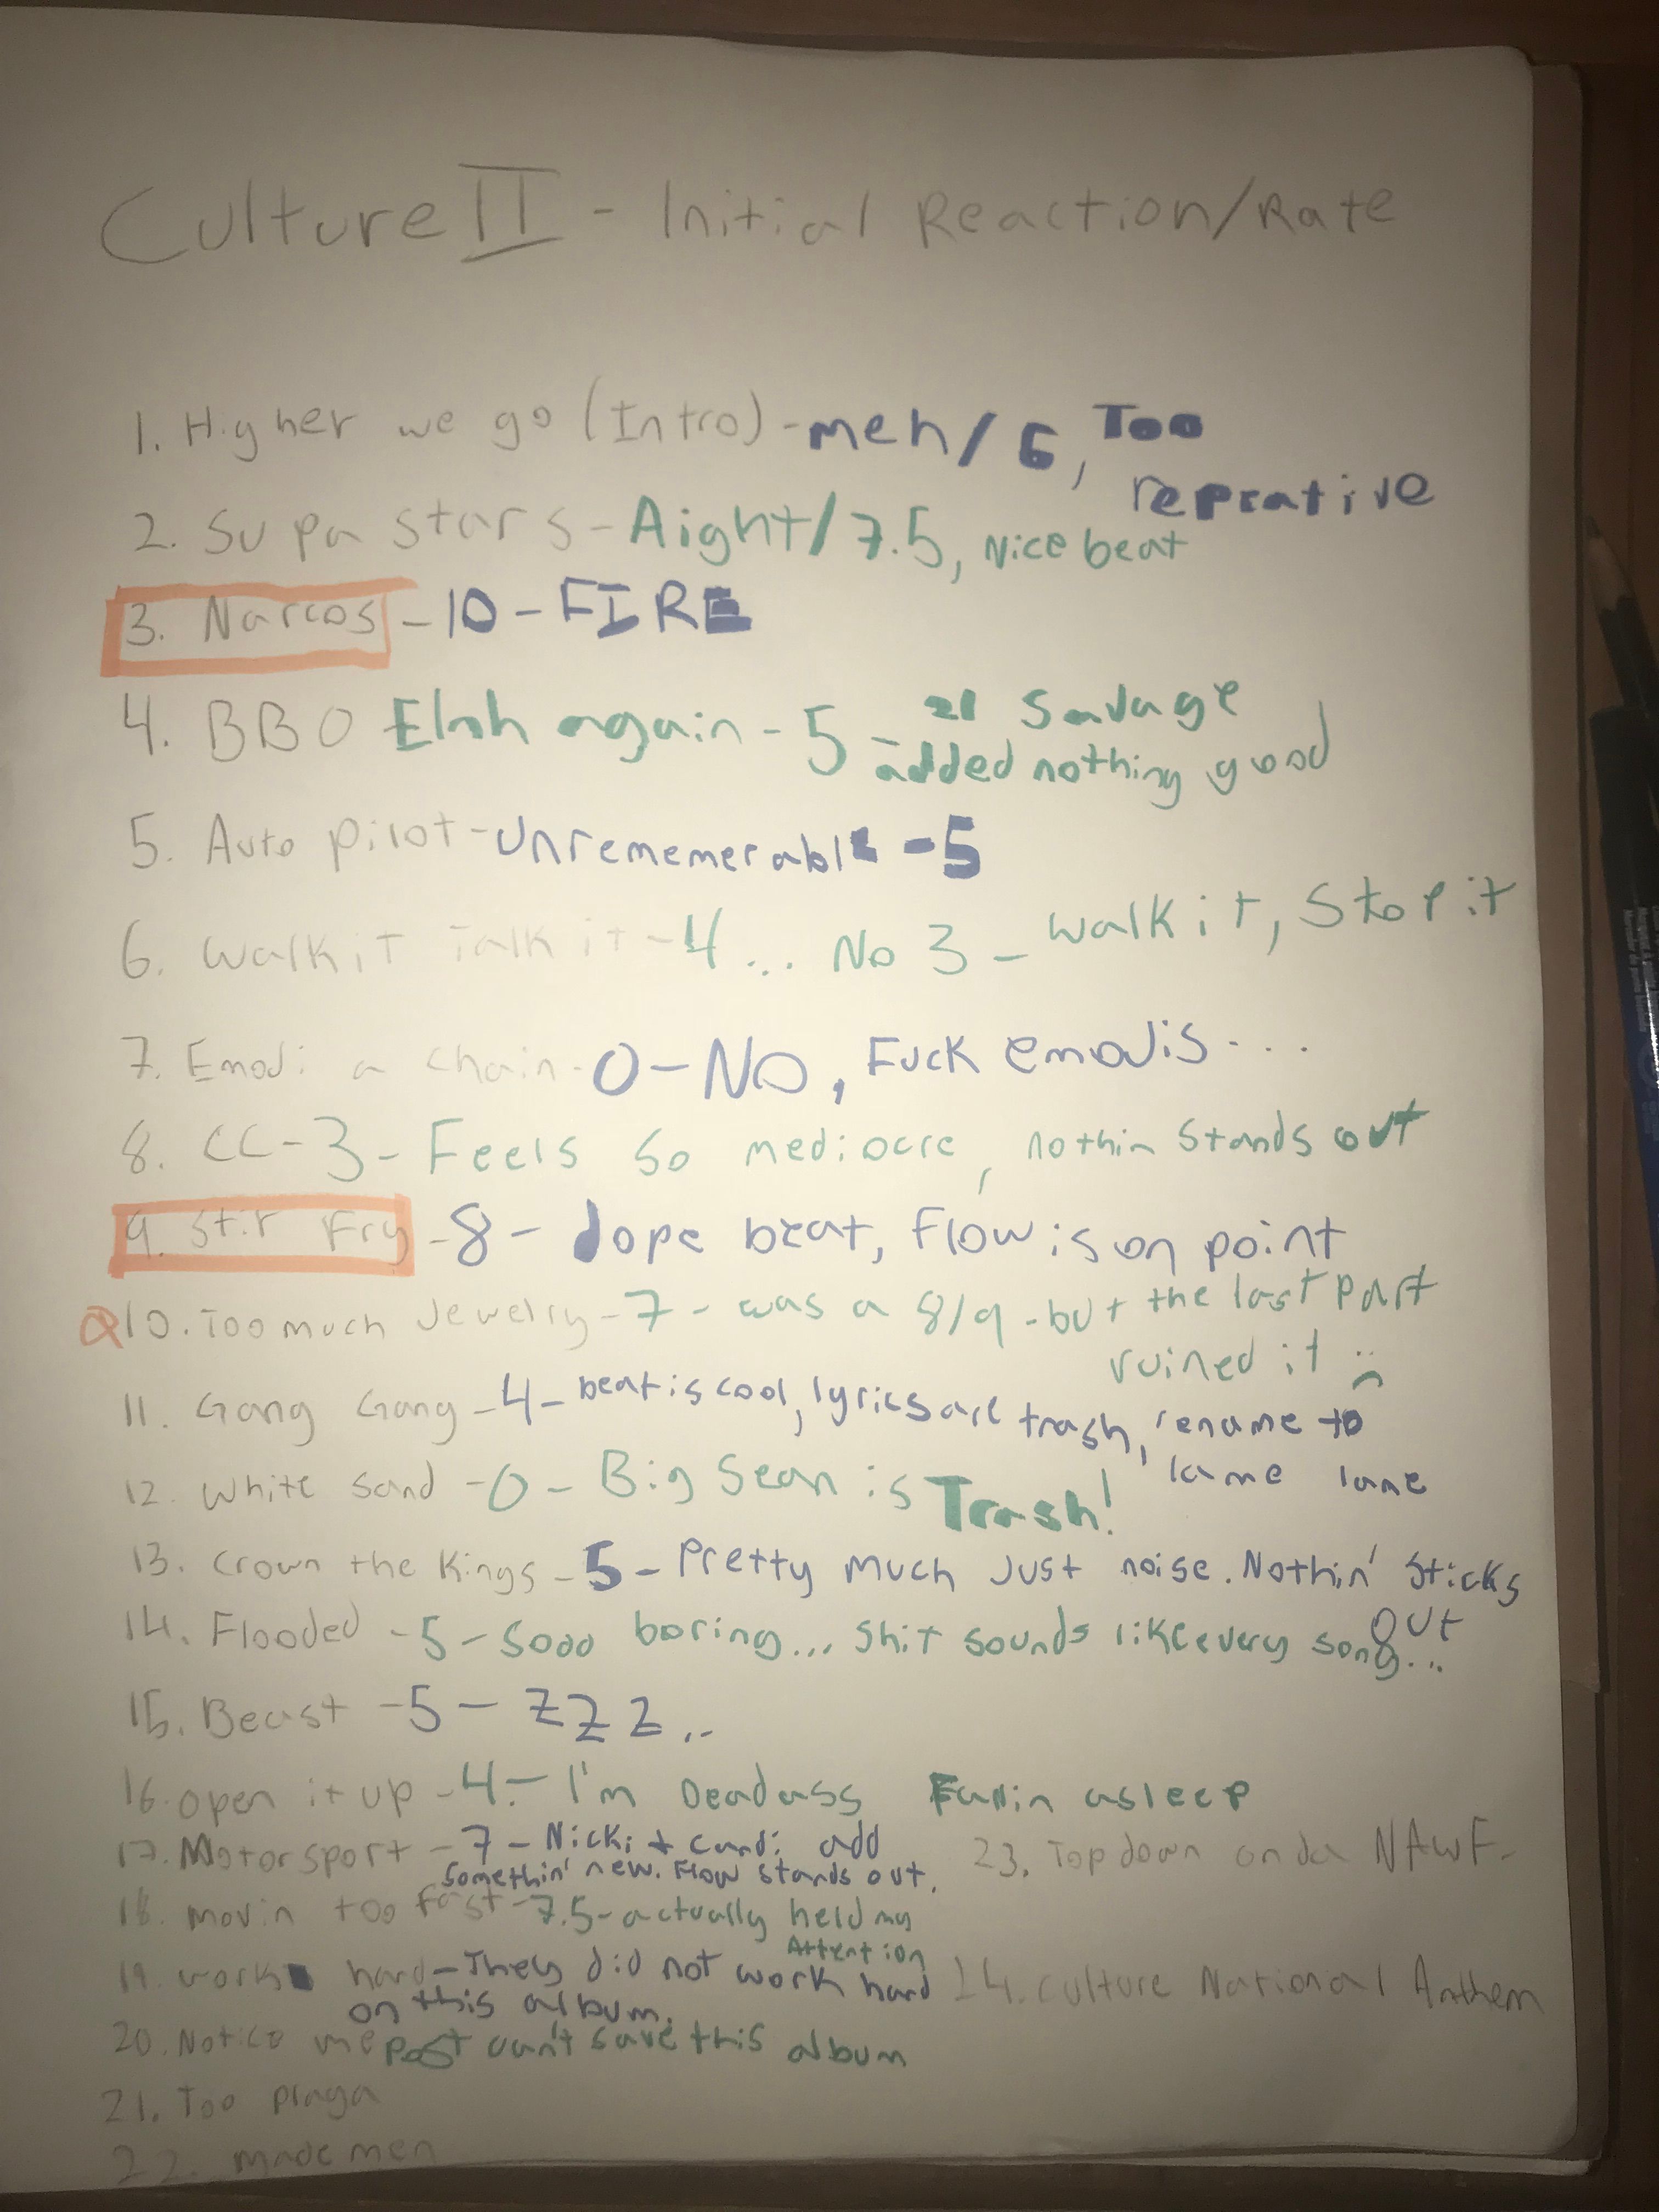 Culture II - Initial Reaction/Rate
1. Higher we go (Intro) - meh/6, Too
repeative
2. Supa stars - Aight/7.5, Nice beat
3. Narcos - 10 - FIRE
4. BBO Ehh again - 5 - 21 Savage
added nothing good
5. Auto pilot - Unrememerable - 5
6. Walk it Talk it - 4... No 3 - Walk it, Stop it
7. Emoji a Chain - 0 - NO, Fuck emojis...
8. CC - 3 - Feels so mediocre, nothin stands out
9. Stir Fry - 8 - dope beat, Flow is on point
10. Too much Jewelry - 7 - was a 8/9 - but the last part
ruined it :(
11. Gang Gang - 4 - beat is cool, lyrics are trash, rename to
lame lane
12. White Sand - 0 - Big Sean is Trash!
13. Crown the Kings - 5 - Pretty much Just noise. Nothin' Sticks
out
14. Flooded - 5 - Sooo boring... Shit sounds like every song...
15. Beast - 5 - ZZZ...
16. Open it up - 4 - I'm Deadass Fallin asleep
17. Motorsport - 7 - Nicki + Cardi add
Somethin' new. Flow stands out.
18. Movin too fast - 7.5 - actually held my
Attention
19. Work hard - They did not work hard
on this album.
20. Notice me Post can't save this album
21. Too playa
22. Made men
23. Top down on da NAWF -
14. Culture National Anthem